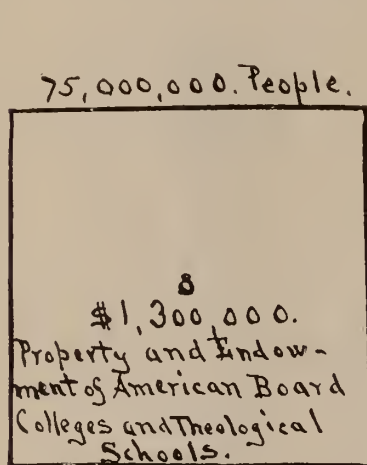 75,000,000. People.
8
$1,300,000.
Property and Endow-
ment of American Board
Colleges and Theological
Schools.